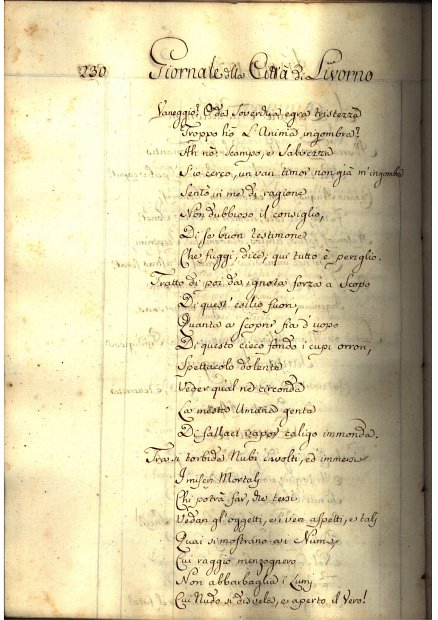 230 Giornale della Città di Livorno
Vaneggio? O da soverchia egra tristezza
Troppo hò l'Anima ingombra?
Ah nò: scampo, e salvezza
S'io cerco, un van timor non già m'ingombra
Sento in me di ragione
Non dubbioso il consiglio,
Di se buon testimone
Che fuggi, dice, qui tutto è periglio.
Tratto di poi da ignota forza a
Di quest' esilio fuori,
Quanta a scoprir fia d'uopo
Di questo cieco fondo i cupi orrori,
Spettacolo dolente
Veder qual ne circonda
La mesta Umana gente
Di fallaci vapor caligo immonda.
Tra sì torbide Nubi involti, ed immersi
I miseri Mortalj
Chi potrà far, che tersi
Vedan gl'oggetti, e i veri aspetti, e talj
Quai si mostrano ai Numi,
Cui raggio menzognero
Non abbarbaglia i Lumj
Cui Nudo si disvela, e aperto il Vero!